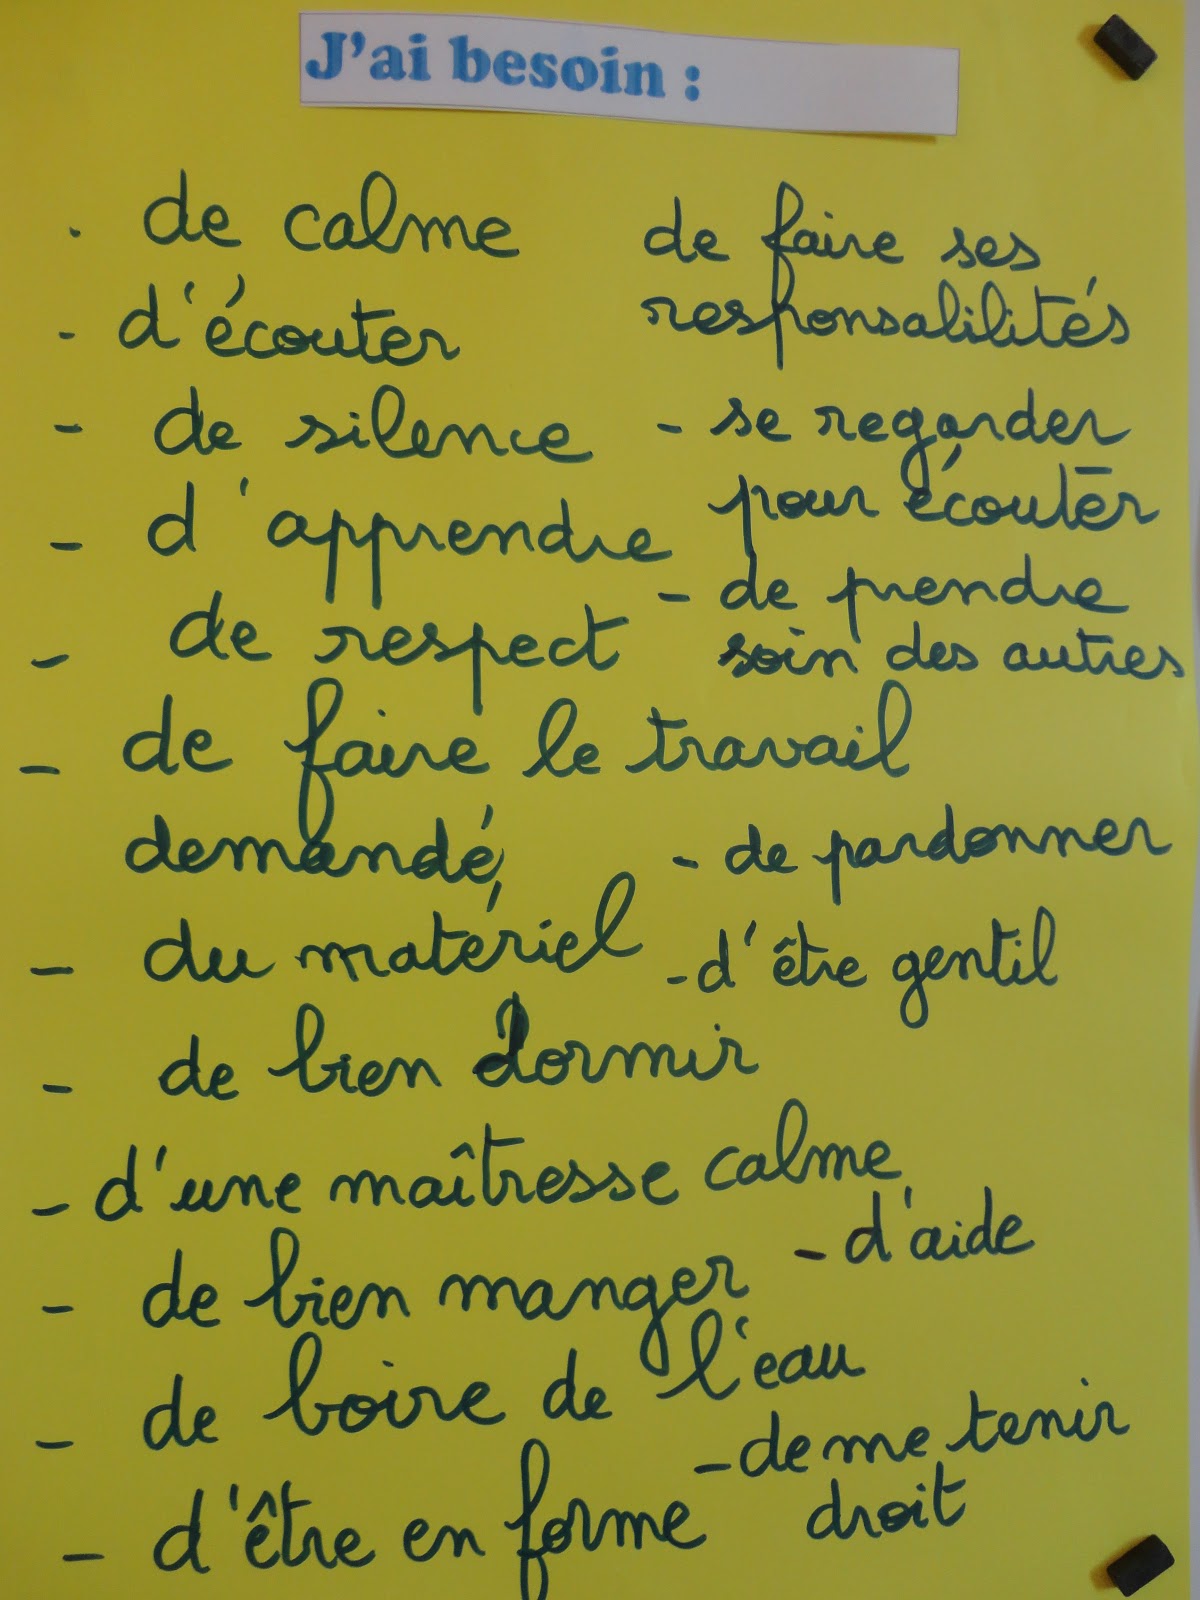 J'ai besoin :
. de calme
- d'écouter
- de silence
- d'apprendre
- de respect
- de faire le travail
demandé
- du matériel
- de bien dormir
- d'une maîtresse calme
- de bien manger
- de boire de l'eau
- d'être en forme
de faire ses
responsabilités
- se regarder
pour écouter
- de prendre
soin des autres
- de pardonner
- d'être gentil
- d'aide
- de me tenir
droit